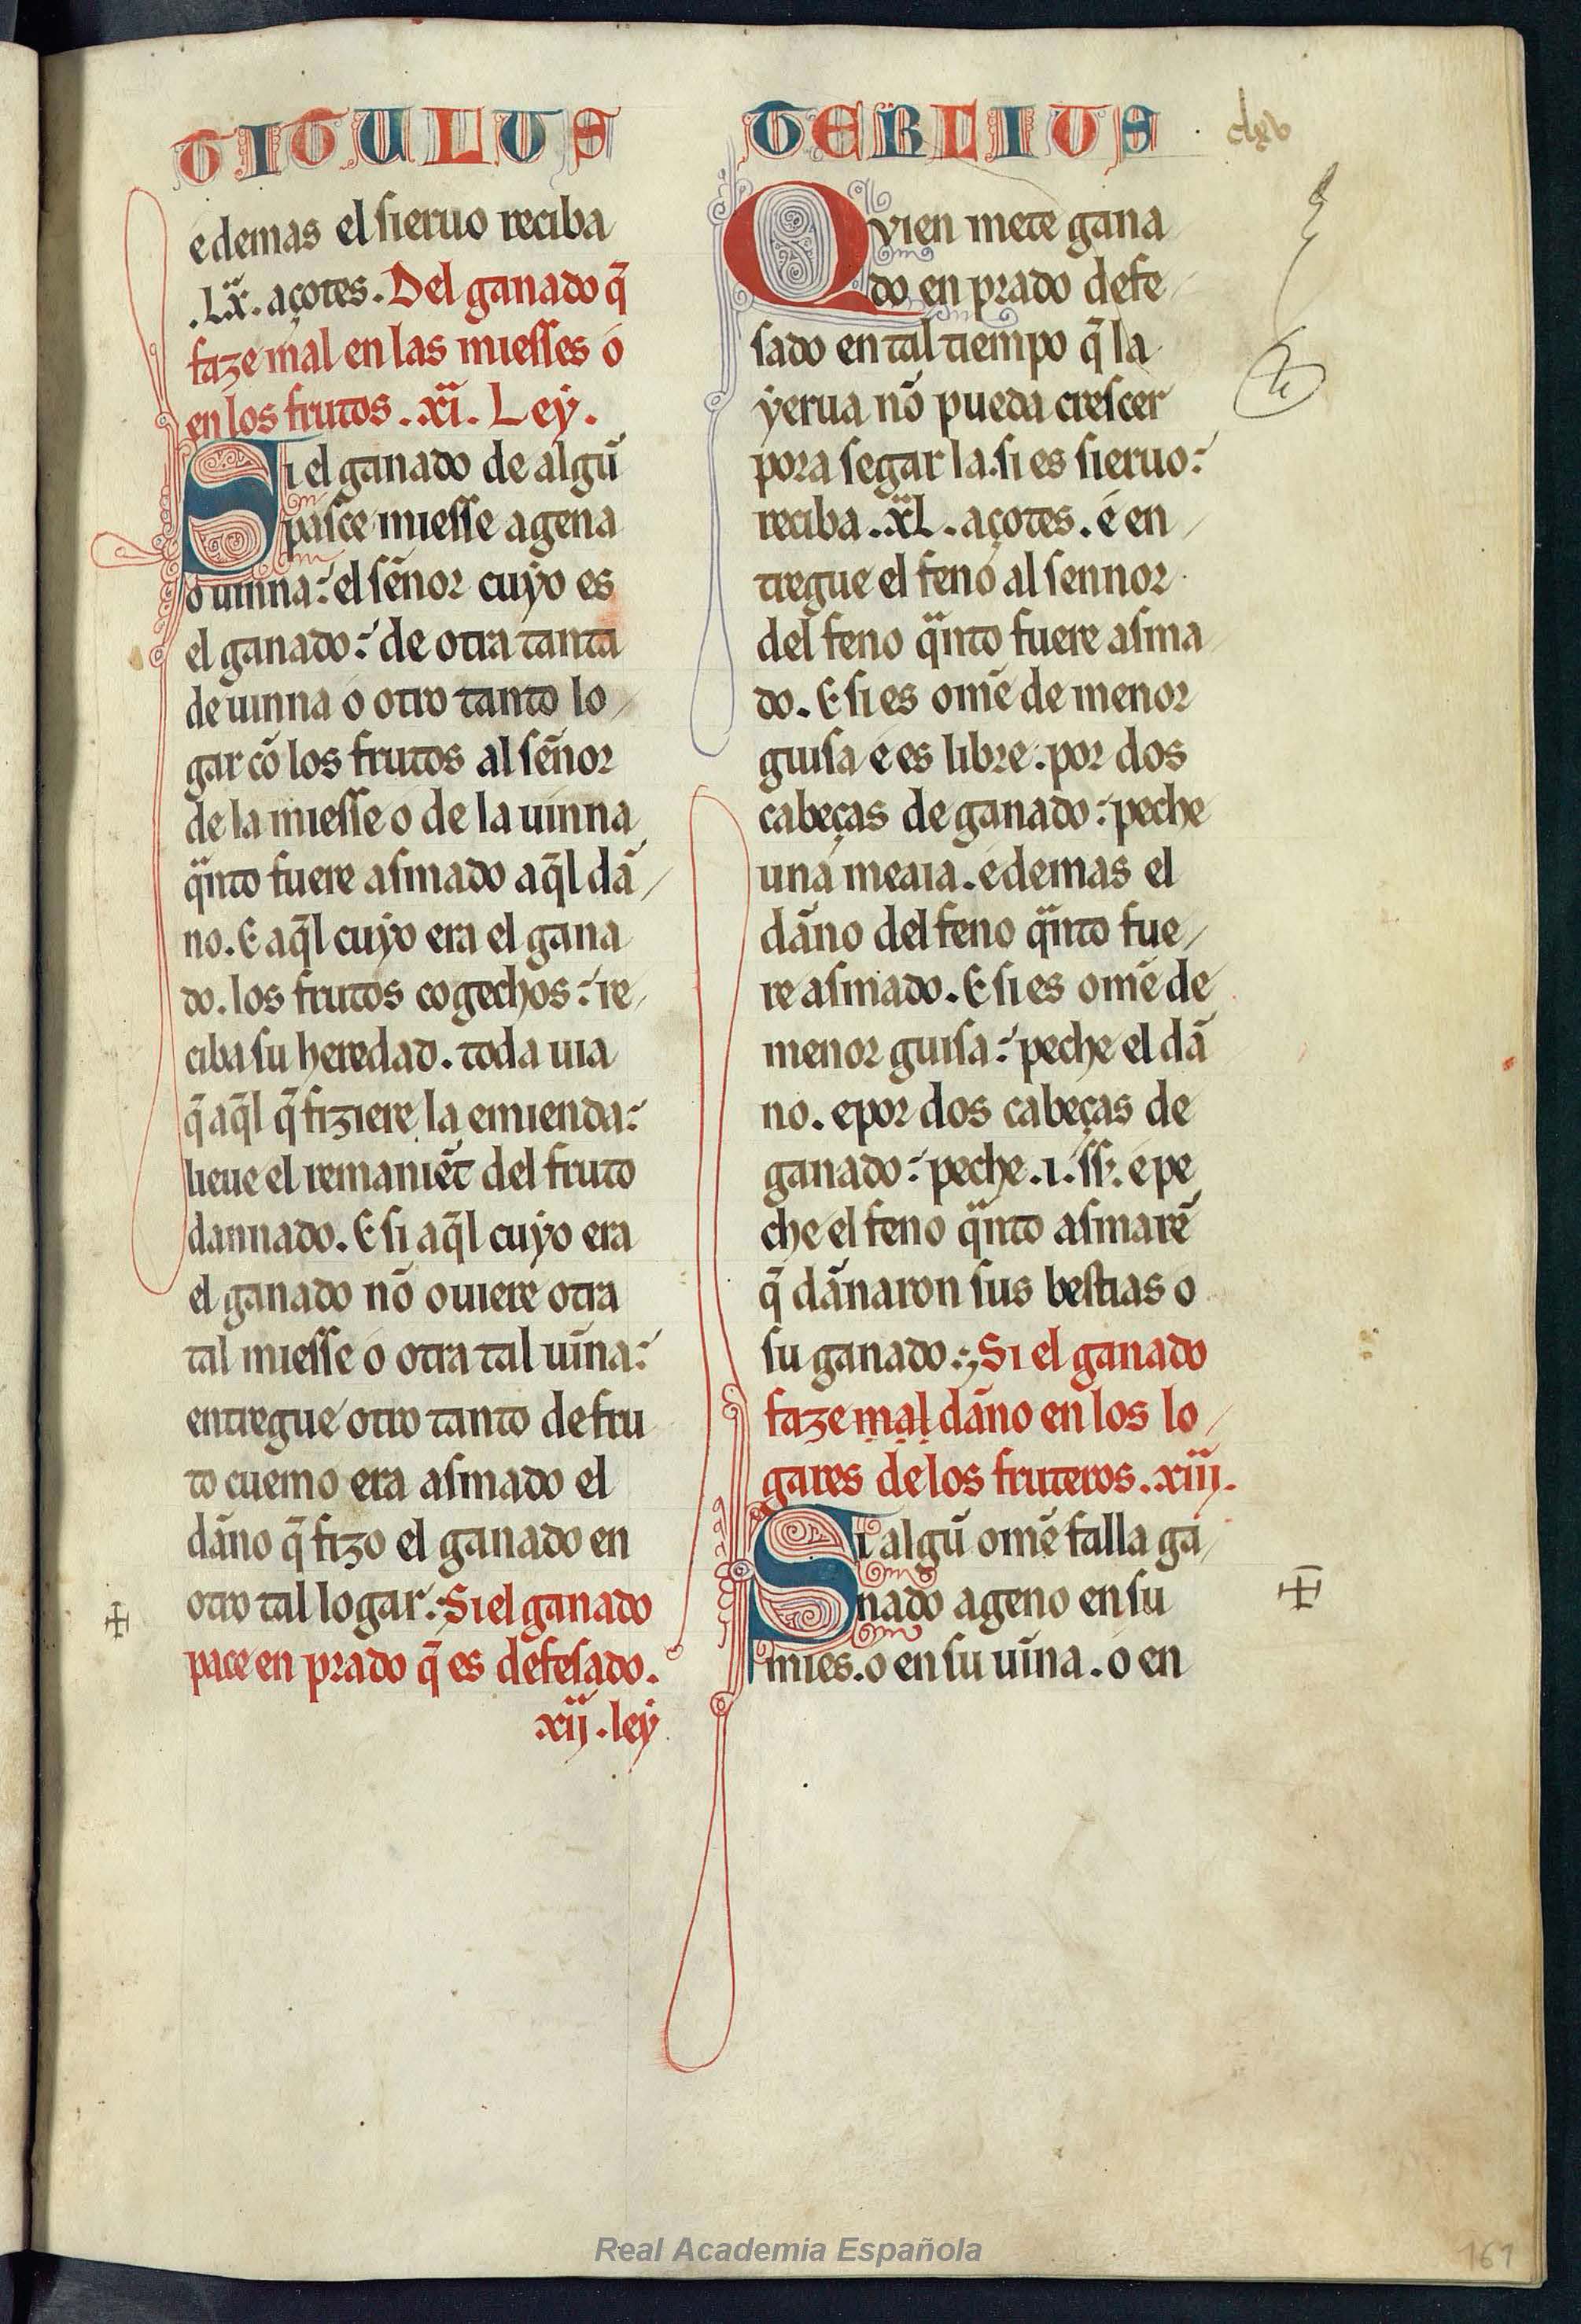 TITULUS TERCIUS
clxv
e demas el sieruo reciba
.Lx̃. açotes. Del ganado q̃
faze mal en las miesses o
en los frutos. .xi. Ley.
Si el ganado de algũ
pasce miesse agena
o uinna: el sẽnor cuyo es
el ganado: de otra tanta
de uinna o otro tanto lo
gar cõ los frutos al sẽnor
de la miesse o de la uinna
q̃nto fuere asmado aq̃l dã
no. E aq̃l cuyo era el gana
do. los frutos cogechos: re
ciba su heredad. toda uia
q̃ aq̃l q̃ fiziere la emienda:
lieue el remaniẽt del fruto
dannado. E si aq̃l cuyo era
el ganado nõ ouiere otra
tal miesse o otra tal uĩna:
entregue otro tanto de fru
to cuemo era asmado el
dãno q̃ fizo el ganado en
otro tal logar: Si el ganado
pace en prado q̃ es defesado.
.xij. ley
Qvien mete gana
do en prado defe
sado en tal tiempo q̃ la
yerua nõ pueda crescer
pora segar la. si es sieruo:
reciba .xL. açotes. e en
tregue el feno al sennor
del feno q̃nto fuere asma
do. E si es omẽ de menor
guisa e es libre. por dos
cabeças de ganado: peche
una meaia. e demas el
dãno del feno q̃nto fue
re asmado. E si es omẽ de
menor guisa: peche el dã
no. e por dos cabeças de
ganado: peche .i. ss̃. e pe
che el feno q̃nto asmarẽ
q̃ dãnaron sus bestias o
su ganado. Si el ganado
faze mal dãno en los lo
gares de los fruteros. .xiij.
Si algũ omẽ falla ga
nado ageno en su
mies. o en su uĩna. o en
161
Real Academia Española